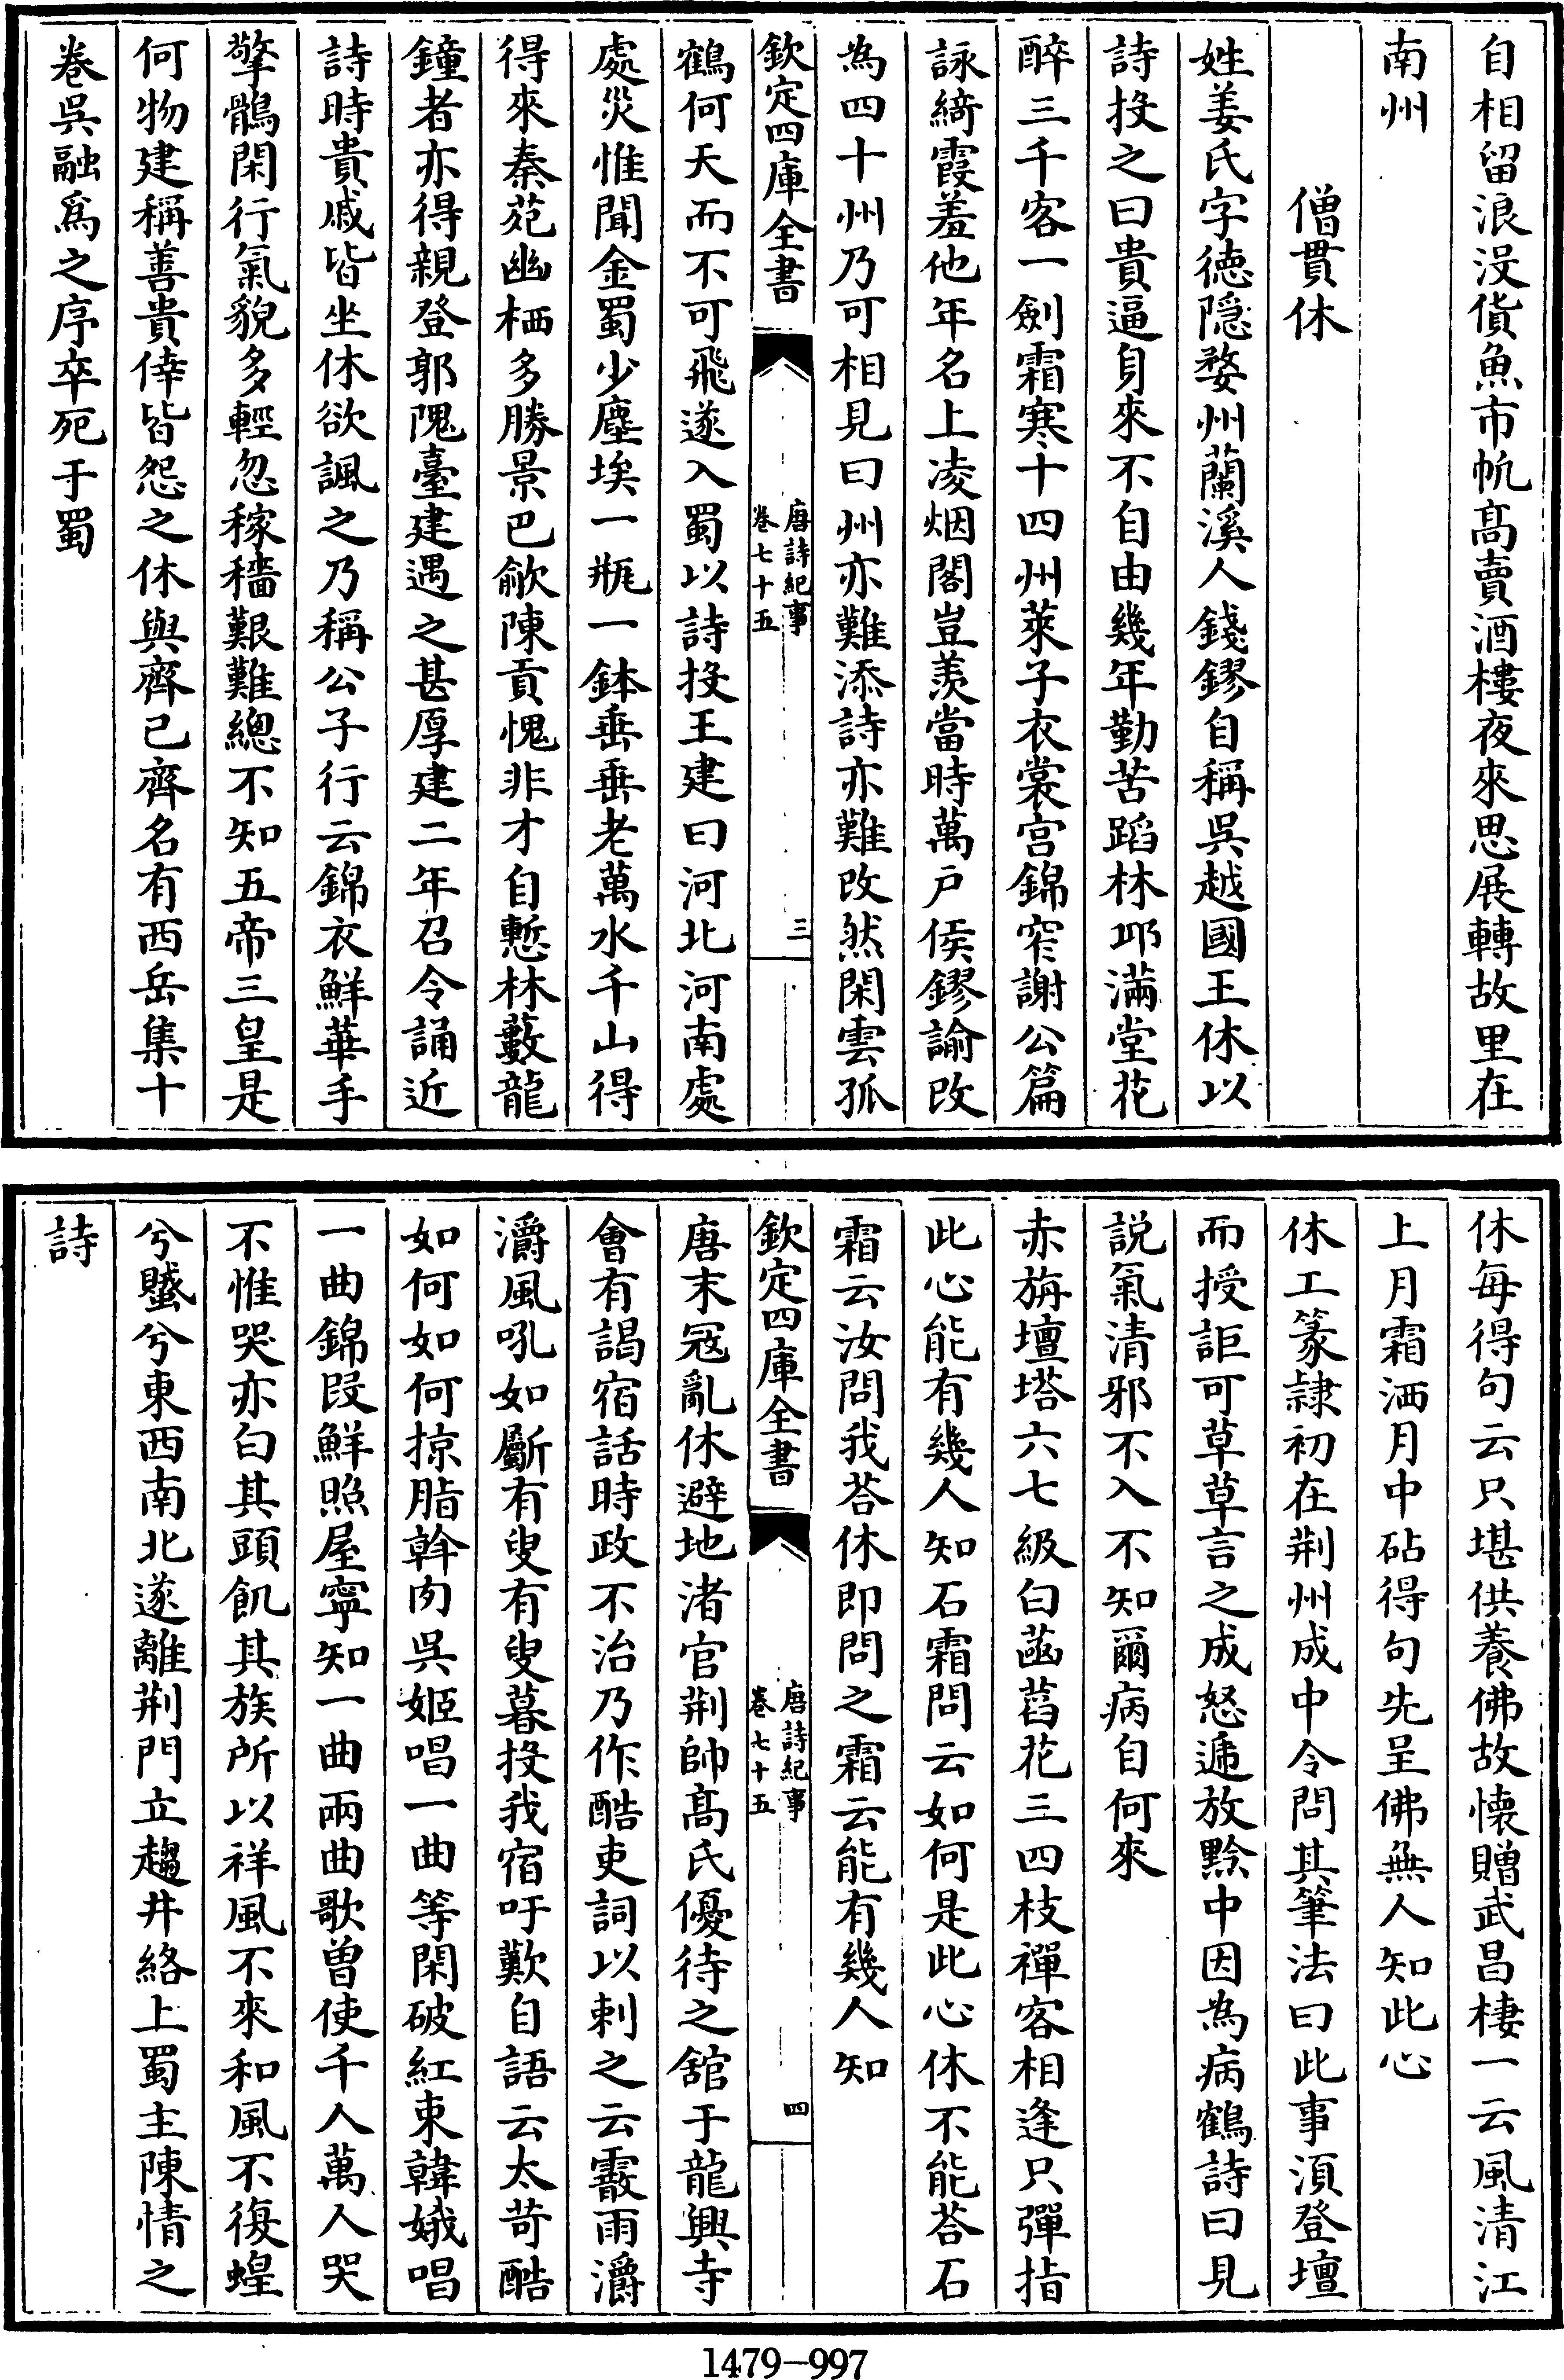 自相留浪没貨魚市帆髙賣酒樓夜來思展轉故里在
南州
僧貫休
姓姜氏字徳隠婺州蘭溪人錢鏐自稱吳越國王休以
詩投之曰貴逼身來不自由幾年勤苦蹈林邱滿堂花
醉三千客一劍霜寒十四州萊子衣裳宫錦窄謝公篇
詠綺霞羞他年名上凌烟閣豈羡當時萬户侯鏐諭改
為四十州乃可相見曰州亦難添詩亦難改然閑雲孤
欽定四庫全書
唐詩紀事
卷七十五
三
鶴何天而不可飛遂入蜀以詩投王建曰河北河南處
處災惟聞金蜀少塵埃一瓶一鉢垂垂老萬水千山得
得來秦苑幽栖多勝景巴歈陳貢愧非才自慙林藪龍
鐘者亦得親登郭隗臺建遇之甚厚建二年召令誦近
詩時貴戚皆坐休欲諷之乃稱公子行云錦衣鮮華手
擎鶻閑行氣貌多輕忽稼穡艱難總不知五帝三皇是
何物建稱善貴倖皆怨之休與齊己齊名有西岳集十
卷吳融爲之序卒死于蜀
休每得句云只堪供養佛故懐贈武昌棲一云風清江
上月霜洒月中砧得句先呈佛無人知此心
休工篆隷初在荆州成中令問其筆法曰此事湏登壇
而授詎可草草言之成怒逓放黔中因為病鶴詩曰見
説氣清邪不入不知爾病自何來
赤旃壇塔六七級白菡萏花三四枝禪客相逢只彈指
此心能有幾人知石霜問云如何是此心休不能荅石
霜云汝問我荅休即問之霜云能有幾人知
欽定四庫全書
唐詩紀事
卷七十五
四
唐末冦亂休避地渚官荆帥髙氏優待之舘于龍興寺
會有謁宿話時政不治乃作酷吏詞以刺之云霰雨灂
灂風吼如斸有叟有叟暮投我宿吁歎自語云太苛酷
如何如何掠脂斡肉吳姬唱一曲等閑破紅束韓娥唱
一曲錦叚鮮照屋寧知一曲兩曲歌曽使千人萬人哭
不惟哭亦白其頭飢其族所以祥風不來和風不復蝗
兮蠈兮東西南北遂離荆門立趨井絡上蜀主陳情之
詩
1479-997